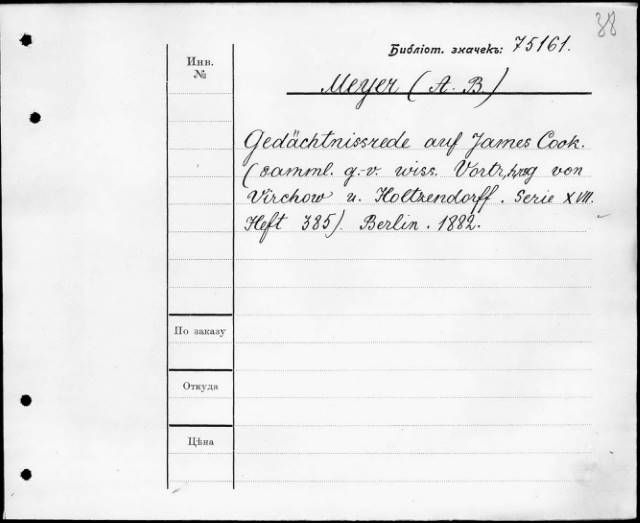 38
Библіот. значекъ: 75161.
Инв.
№
Meyer (A. B.)
Gedächtnissrede auf James Cook.
(Samml. g.-v. wiss. Vortr, hrsg von
Virchow u. Holtzendorff. Serie XVII.
Heft 385). Berlin. 1882.
По заказу
Откуда
Цѣна